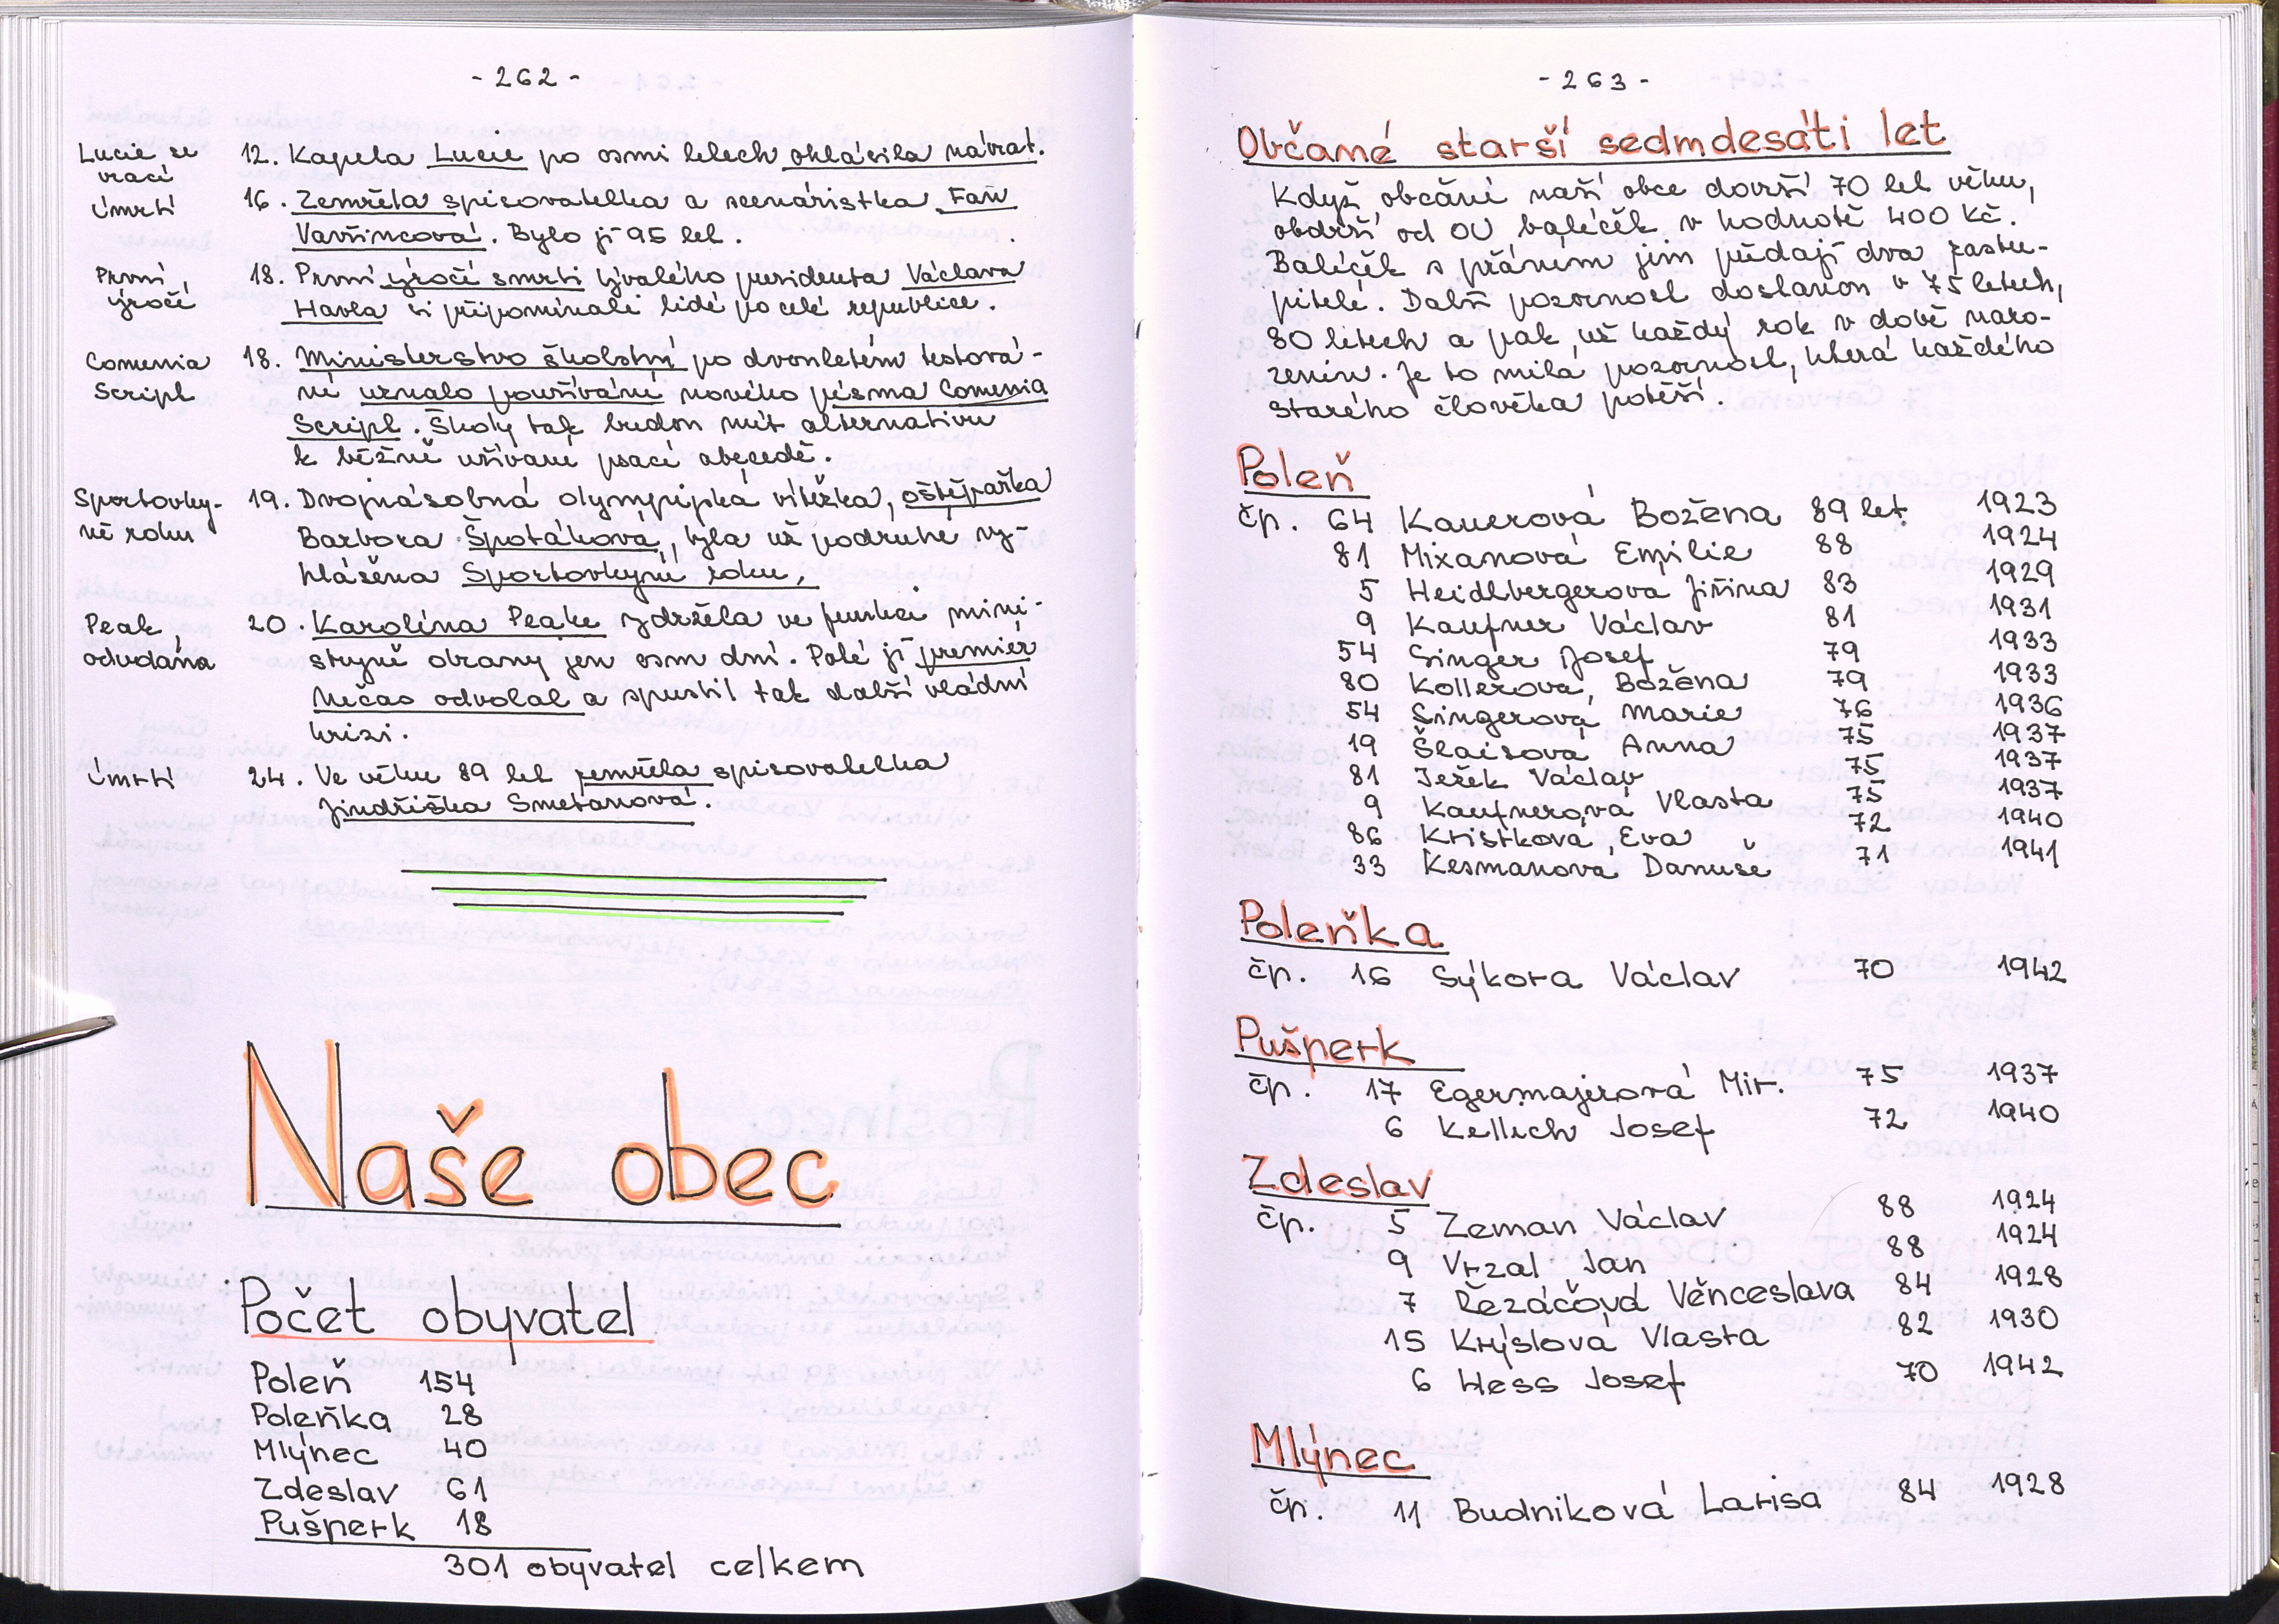 - 262 -
Lucie se vrací
12. Kapela Lucie po osmi letech ohlásila návrat.
Úmrtí
16. Zemřela spisovatelka a scenáristka Fan
Vavřincová. Bylo jí 95 let.
První výročí
18. První výročí smrti bývalého prezidenta Václava
Havla si připomínali lidé po celé republice.
Comenia Script
18. Ministerstvo školství po dvouletém testová-
ní uznalo používání nového písma Comenia
Script. Školy tak budou mít alternativu
k běžně užívané psací abecedě.
Sportovky-
ně roku
19. Dvojnásobná olympijská vítězka, oštěpařka
Barbora Špotáková, byla už podruhé vy-
hlášena Sportovkyní roku.
Peak odvolána
20. Karolína Peake vydržela ve funkci mini-
stryně obrany jen osm dní. Poté ji premiér
Nečas odvolal a spustil tak další vládní
krizi.
Úmrtí
24. Ve věku 89 let zemřela spisovatelka
Jindřiška Smetanová.
Naše obec
Počet obyvatel
Poleň 154
Poleňka 28
Mlýnec 40
Zdeslav 61
Pušperk 18
301 obyvatel celkem
- 263 -
Občané starší sedmdesáti let
Když občané naší obce dovrší 70 let věku,
obdrží od OÚ balíček v hodnotě 400 Kč.
Balíček s přáním jim předají dva zastu-
pitelé. Další pozornost dostanou v 75 letech,
80 letech a pak už každý rok v době naro-
zenin. Je to milá pozornost, která každého
starého člověka potěší.
Poleň
čp. 64 Kauerová Božena 89 let 1923
81 Mixanová Emilie 88 1924
5 Heidlbergerova Jiřina 83 1929
9 Kaufner Václav 81 1931
54 Singer Josef 79 1933
80 Kollerová Božena 79 1933
54 Singerová Marie 76 1936
19 Šlaisová Anna 75 1937
81 Ježek Václav 75 1937
9 Kaufnerová Vlasta 75 1937
86 Kristková Eva 72 1940
33 Kesmanová Danuše 71 1941
Poleňka
čp. 16 Sýkora Václav 70 1942
Pušperk
čp. 17 Egermajerová Mir. 75 1937
6 Kellich Josef 72 1940
Zdeslav
čp. 5 Zeman Václav 88 1924
9 Vrzal Jan 88 1924
7 Řezáčová Věnceslava 84 1928
15 Krýslová Vlasta 82 1930
6 Hess Josef 70 1942
Mlýnec
čp. 11 Budniková Larisa 84 1928